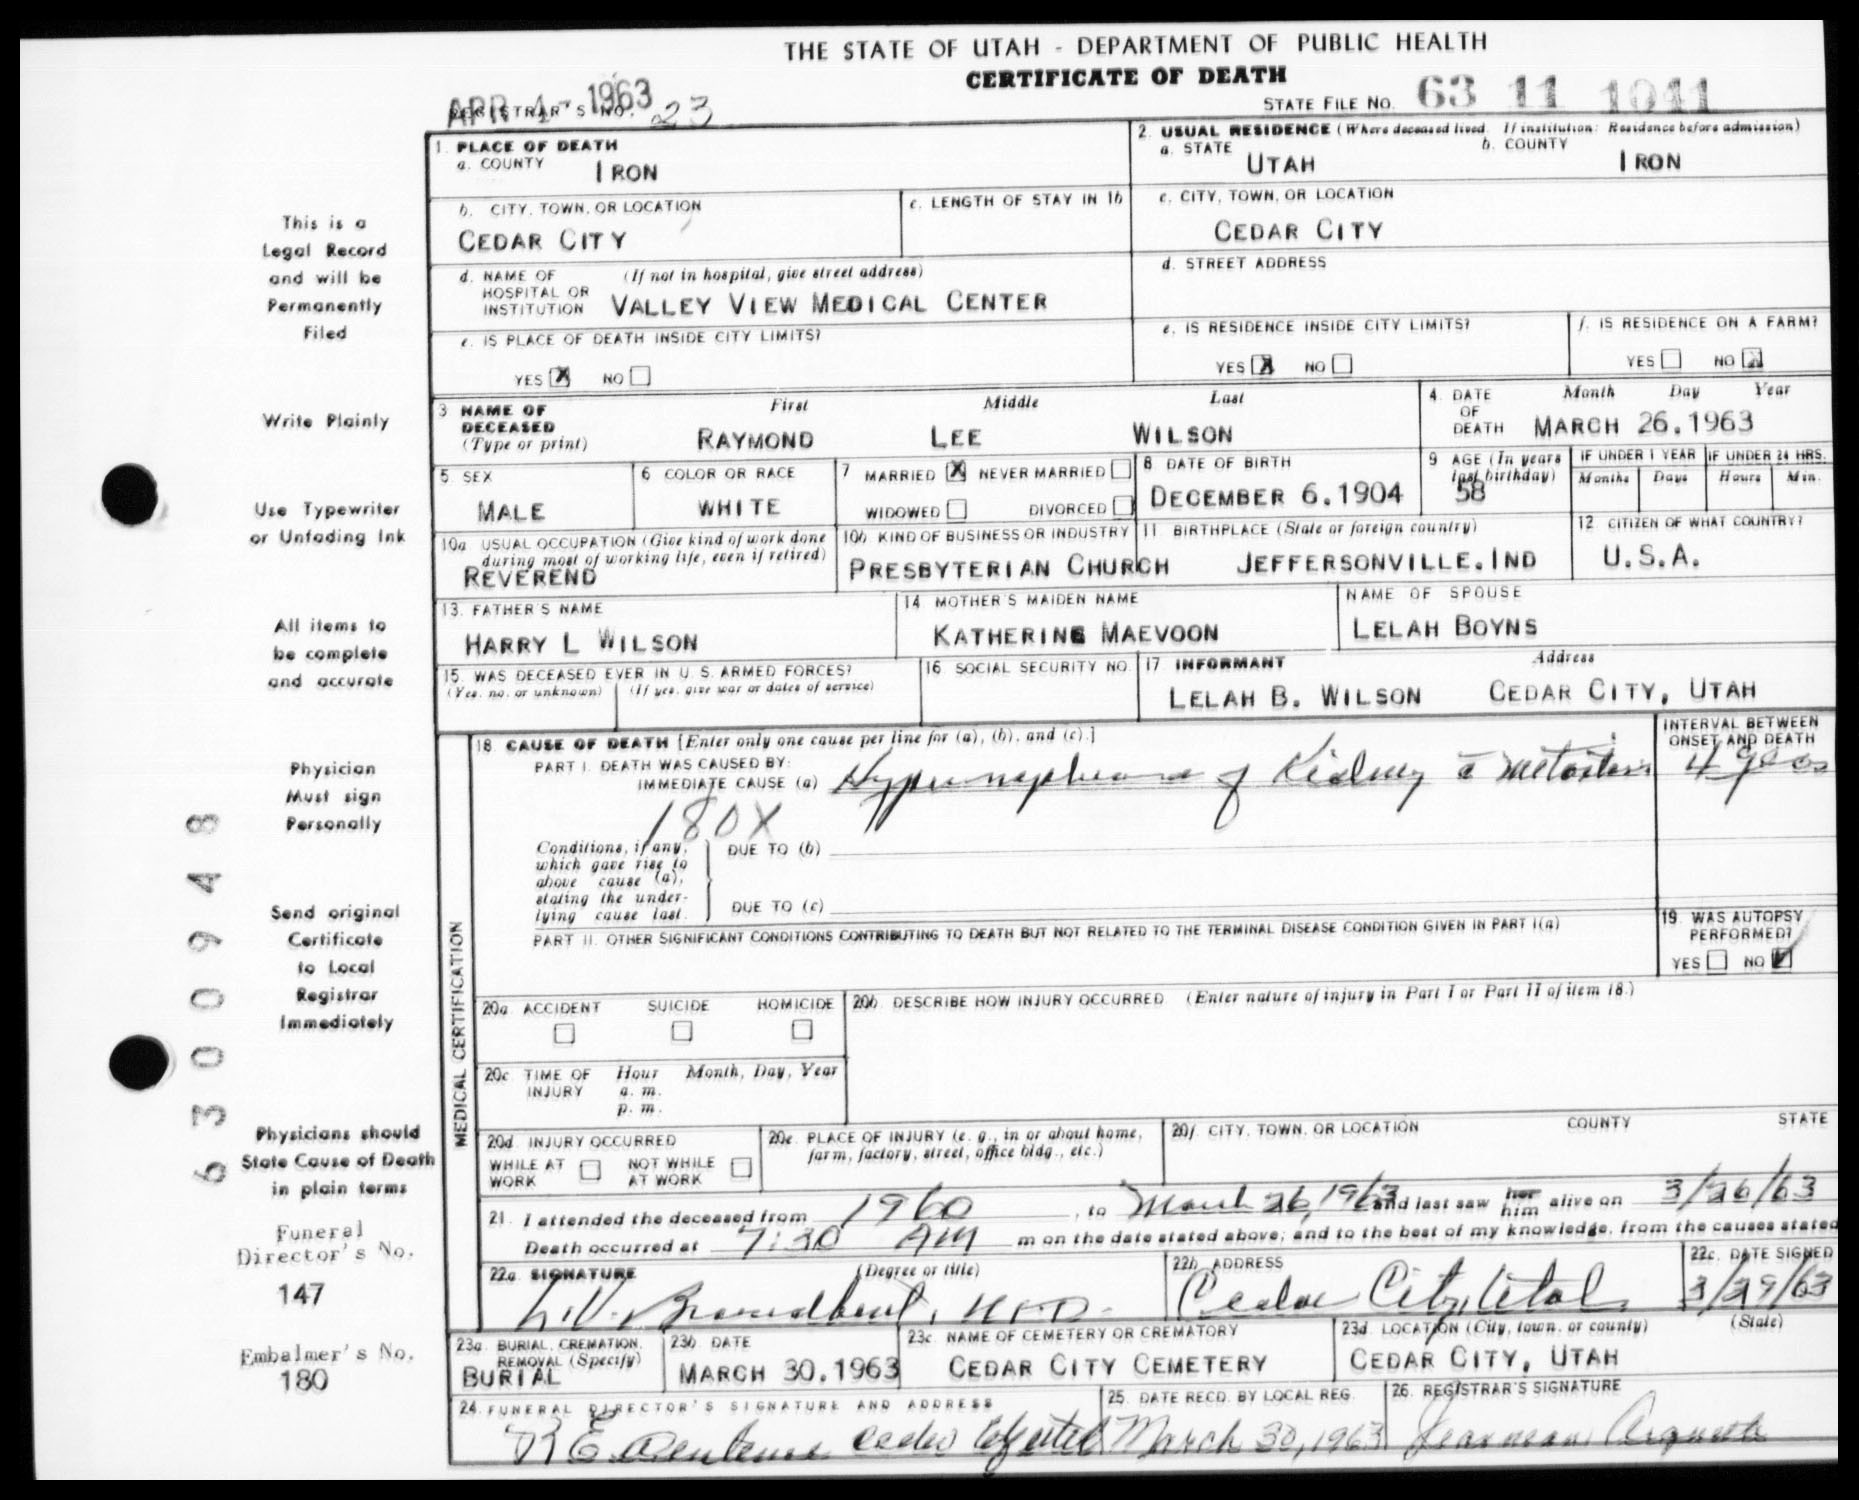 THE STATE OF UTAH - DEPARTMENT OF PUBLIC HEALTH
CERTIFICATE OF DEATH
APR 1 - 1963
REGISTRAR'S NO. 23
STATE FILE NO. 63 11 1041
1. PLACE OF DEATH
a. COUNTY IRON
2. USUAL RESIDENCE (Where deceased lived. If institution: Residence before admission)
a. STATE UTAH b. COUNTY IRON
b. CITY, TOWN, OR LOCATION CEDAR CITY
c. LENGTH OF STAY IN 1b
c. CITY, TOWN, OR LOCATION CEDAR CITY
d. NAME OF HOSPITAL OR INSTITUTION (If not in hospital, give street address) VALLEY VIEW MEDICAL CENTER
d. STREET ADDRESS
e. IS PLACE OF DEATH INSIDE CITY LIMITS?
YES X NO
e. IS RESIDENCE INSIDE CITY LIMITS?
YES X NO
f. IS RESIDENCE ON A FARM?
YES NO X
3 NAME OF DECEASED (Type or print)
First Middle Last
RAYMOND LEE WILSON
4. DATE OF DEATH Month Day Year
MARCH 26.1963
5. SEX MALE
6 COLOR OR RACE WHITE
7 MARRIED X NEVER MARRIED
WIDOWED DIVORCED
8 DATE OF BIRTH DECEMBER 6.1904
9 AGE (In years last birthday) 58
IF UNDER 1 YEAR Months Days
IF UNDER 24 HRS. Hours Min.
10a USUAL OCCUPATION (Give kind of work done during most of working life, even if retired)
REVEREND
10b. KIND OF BUSINESS OR INDUSTRY
PRESBYTERIAN CHURCH
11. BIRTHPLACE (State or foreign country)
JEFFERSONVILLE.IND
12. CITIZEN OF WHAT COUNTRY?
U.S.A.
13. FATHER'S NAME
HARRY L WILSON
14 MOTHER'S MAIDEN NAME
KATHERINE MAEVOON
NAME OF SPOUSE
LELAH BOYNS
15. WAS DECEASED EVER IN U.S. ARMED FORCES?
(Yes, no, or unknown) (If yes, give war or dates of service)
16 SOCIAL SECURITY NO.
17. INFORMANT Address
LELAH B. WILSON CEDAR CITY, UTAH
MEDICAL CERTIFICATION
18. CAUSE OF DEATH [Enter only one cause per line for (a), (b), and (c).]
INTERVAL BETWEEN ONSET AND DEATH
PART I. DEATH WAS CAUSED BY:
IMMEDIATE CAUSE (a) Hypernephroma of Kidney c̄ metastasis 4 years
180X
Conditions, if any, which gave rise to above cause (a), stating the underlying cause last.
DUE TO (b)
DUE TO (c)
PART II. OTHER SIGNIFICANT CONDITIONS CONTRIBUTING TO DEATH BUT NOT RELATED TO THE TERMINAL DISEASE CONDITION GIVEN IN PART I(a)
19. WAS AUTOPSY PERFORMED?
YES NO
20a ACCIDENT SUICIDE HOMICIDE
20b DESCRIBE HOW INJURY OCCURRED (Enter nature of injury in Part I or Part II of item 18.)
20c TIME OF INJURY Hour a. m. p. m. Month, Day, Year
20d INJURY OCCURRED
WHILE AT WORK NOT WHILE AT WORK
20e. PLACE OF INJURY (e. g., in or about home, farm, factory, street, office bldg., etc.)
20f. CITY, TOWN, OR LOCATION COUNTY STATE
21. I attended the deceased from 1960, to March 26, 1963 and last saw her him alive on 3/26/63
Death occurred at 7:30 AM m on the date stated above; and to the best of my knowledge, from the causes stated
22a SIGNATURE (Degree or title)
L.V. Broadbent, M.D.
22b ADDRESS
Cedar City, Utah
22c. DATE SIGNED
3/29/63
23a. BURIAL, CREMATION, REMOVAL (Specify)
BURIAL
23b. DATE
MARCH 30.1963
23c NAME OF CEMETERY OR CREMATORY
CEDAR CITY CEMETERY
23d. LOCATION (City, town, or county) (State)
CEDAR CITY, UTAH
24. FUNERAL DIRECTOR'S SIGNATURE AND ADDRESS
25. DATE RECD. BY LOCAL REG.
March 30, 1963
26. REGISTRAR'S SIGNATURE
This is a
Legal Record
and will be
Permanently
Filed
Write Plainly
Use Typewriter
or Unfading Ink
All items to
be complete
and accurate
Physician
Must sign
Personally
Send original
Certificate
to Local
Registrar
Immediately
Physicians should
State Cause of Death
in plain terms
Funeral
Director's No.
147
Embalmer's No.
180
6300948